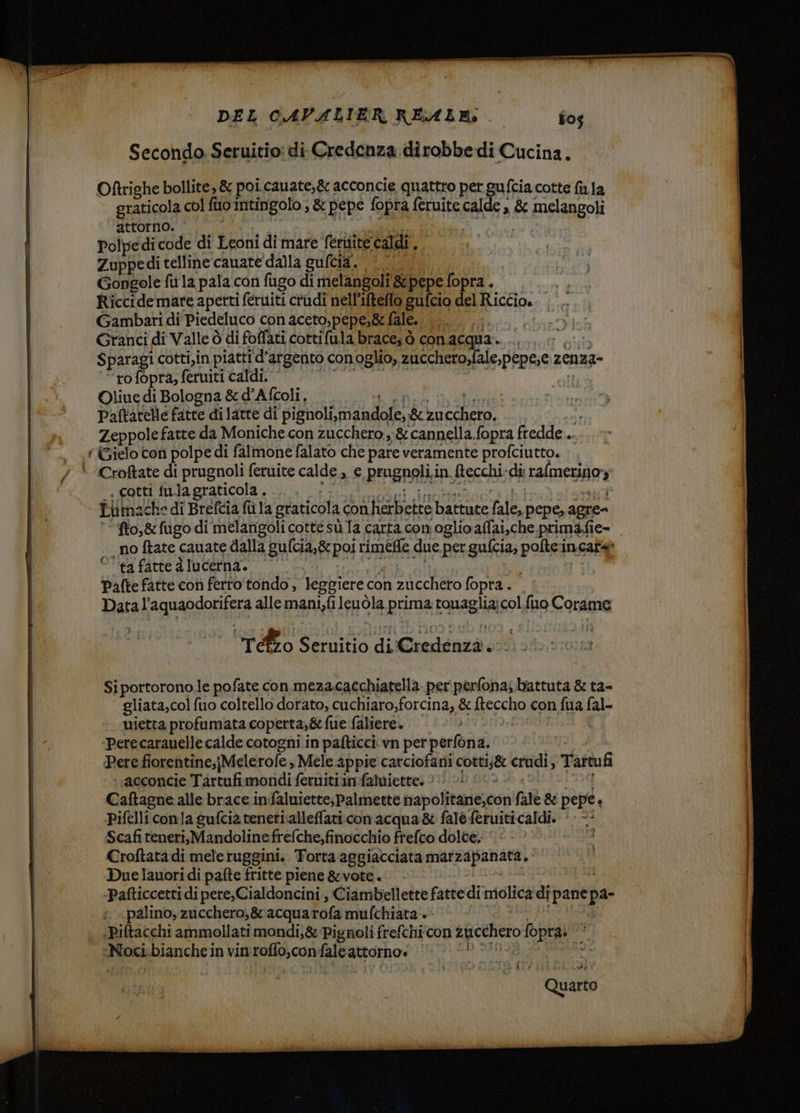 DEL CAVALIER REALE. 105
Secondo Seruitio di Credenza di robbe di Cucina.
Oſtrighe bollite, & poi cauate, & acconcie quattro per guſcia cotte ſu la
graticola col ſuo intingolo, & pepe ſopra ſeruite calde, & melangoli
attorno.
Polpe di code di Leoni di mare ſeruite caldi.
Zuppe di telline cauate dalla guſcia.
Gongole ſu la pala con ſugo di melangoli & pepe ſopra.
Ricci de mare aperti ſeruiti crudi nell'iſteſſo guſcio del Riccio.
Gambari di Piedeluco con aceto, pepe, & ſale.
Granci di Valle ò di foſſati cotti ſu la brace, ò con acqua.
Sparagi cotti, in piatti d'argento con oglio, zucchero, ſale, pepe, e zenza-
ro ſopra, ſeruiti caldi.
Oliue di Bologna & d'Aſcoli.
Paſtatelle fatte di latte di pignoli, mandole, & zucchero.
Zeppole fatte da Moniche con zucchero, & cannella ſopra fredde.
Gielo con polpe di ſalmone ſalato che pare veramente proſciutto.
Croſtate di prugnoli ſeruite calde, e prugnoli in ſtecchi di raſmerino,
cotti ſu la graticola.
Lumache di Breſcia ſù la graticola con herbette battute ſale, pepe, agre-
ſto, & ſugo di melangoli cotte sù la carta con oglio aſſai, che prima ſie-
no ſtate cauate dalla guſcia, & poi rimeſſe due per guſcia, poſte in car-
ta fatte à lucerna.
Paſte fatte con ferro tondo, leggiere con zucchero ſopra.
Data l'aqua odorifera alle mani, ſi leuòla prima touaglia col ſuo Corame
Terzo Seruitio di Credenza.
Si portorono le poſate con meza cacchiatella per perſona, battuta & ta-
gliata, col ſuo coltello dorato, cuchiaro, forcina, & ſteccho con ſua ſal-
uietta profumata coperta, & ſue ſaliere.
Pere carauelle calde cotogni in paſticci vn per perſona.
Pere fiorentine, Meleroſe, Mele appie carciofani cotti, & crudi, Tartufi
acconcie Tartufi mondi ſeruiti in ſaluiette.
Caſtagne alle brace in ſaluiette, Palmette napolitane, con ſale & pepe.
Piſelli con la guſcia teneri alleſſati con acqua & ſalè ſeruiti caldi.
Scafi teneri, Mandoline freſche, finocchio freſco dolce.
Croſtata di mele ruggini. Torta aggiacciata marzapanata.
Due lauori di paſte fritte piene & vote.
Paſticcetti di pere, Cialdoncini, Ciambellette fatte di molica di pane pa-
palino, zucchero, & acqua roſa muſchiata.
Piſtacchi ammollati mondi, & Pignoli freſchi con zucchero ſopra.
Noci bianche in vin roſſo, con ſale attorno.
Quarto